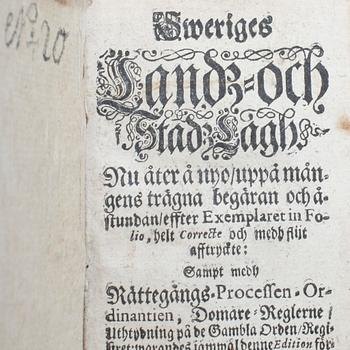 N:o 20
Sweriges
Landz=och
Stadz Lagh.
Nu åter å nyo/uppå mån-
gens trägna begäran och å-
stundan/effter Exemplaret in Fo-
lio, helt Correcte och medh flijt
afftryckte:
Sampt medh
Rättegångs-Processen-Or-
dinantien, Domare-Reglerne/
Uthtydning på de Gambla Orden/Regi-
stret: warandes jämwäl denne Edition för-